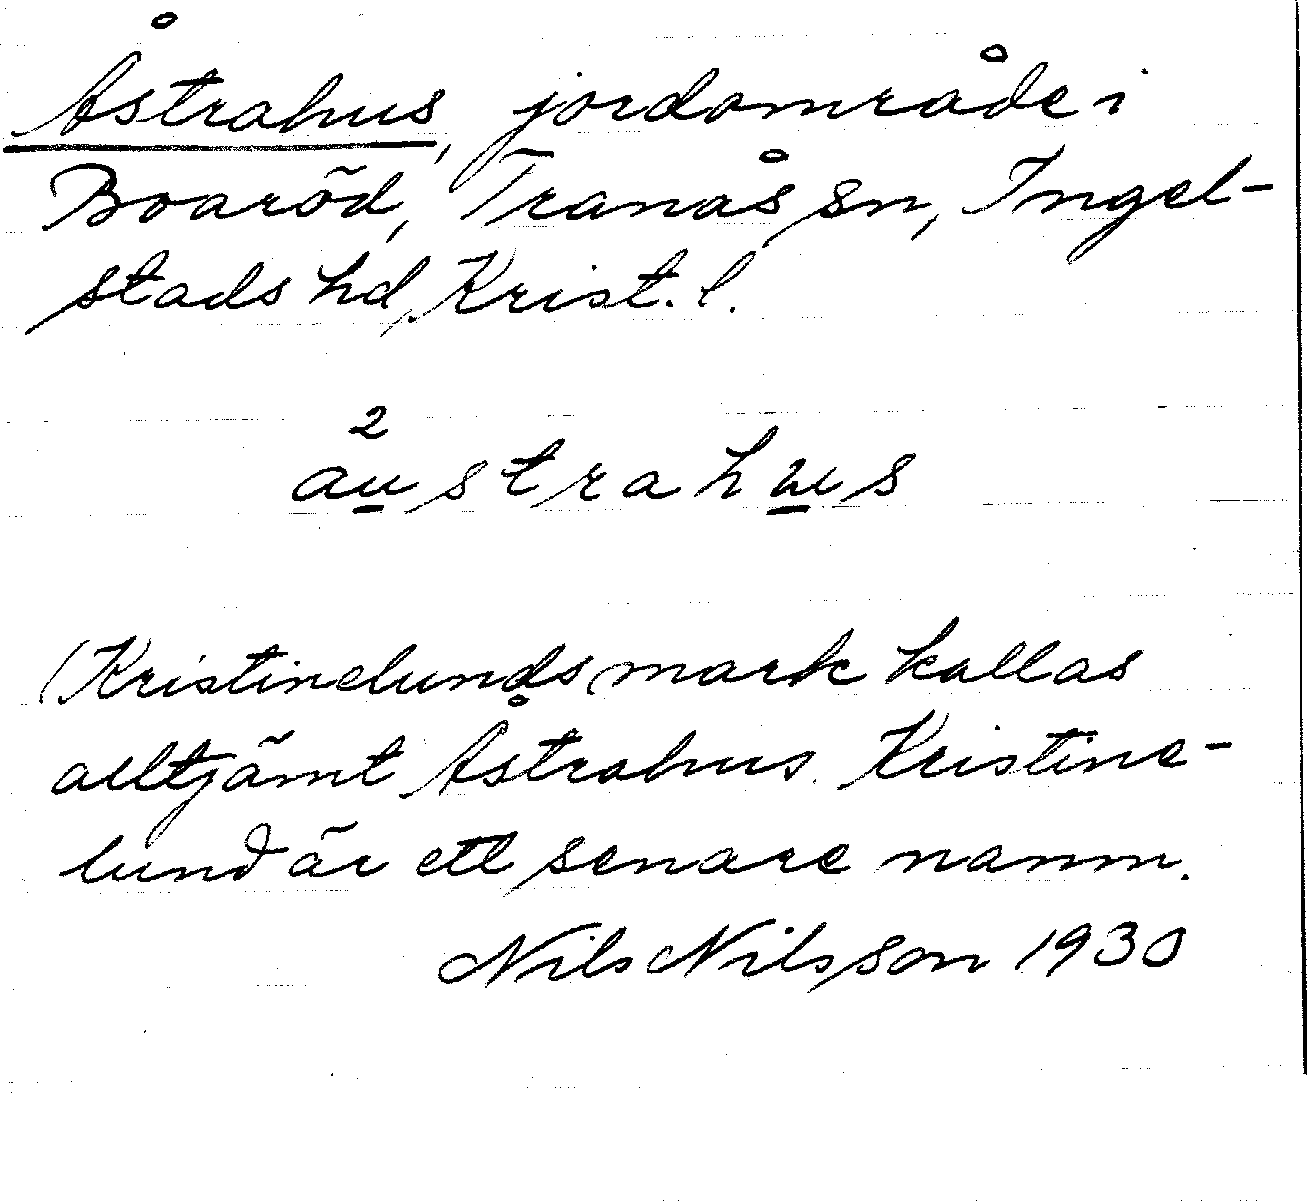 Åstrahus, jordområde i
Boaröd, Tranås sn, Ingel-
stads hd, Krist. l.
2
au̲strahu̲s
(Kristinelunds mark kallas
alltjämt Åstrahus. Kristine-
lund är ett senare namn.
Nils Nilsson 1930